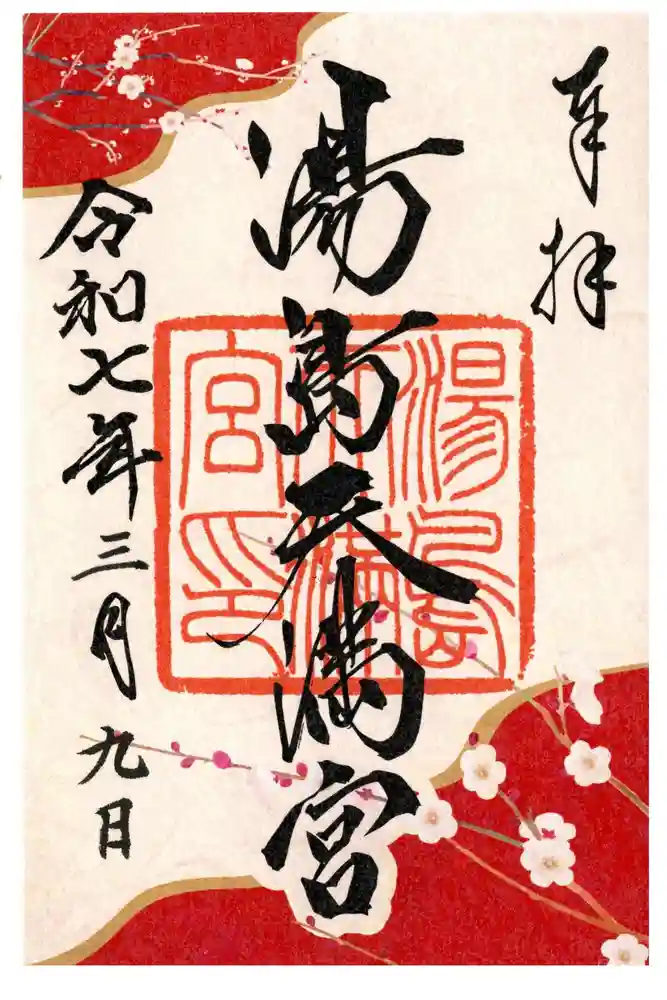 奉拝
湯島天満宮
湯島天満宮印
令和七年三月九日